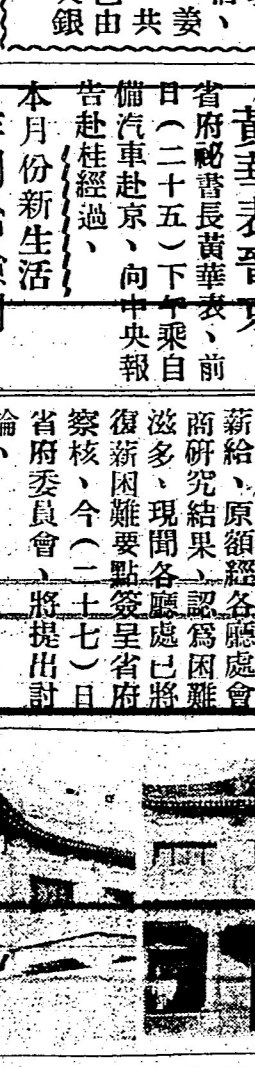 姜
共
由
銀
黃華表晋京
省府祕書長黃華表、前
日（二十五）下午乘自
備汽車赴京、向中央報
告赴桂經過、
本月份新生活
薪給、原額經各廳處會
商硏究結果、認爲困難
滋多、現聞各廳處已將
復薪困難要點簽呈省府
察核、今（二十七）日
省府委員會、將提出討
論、